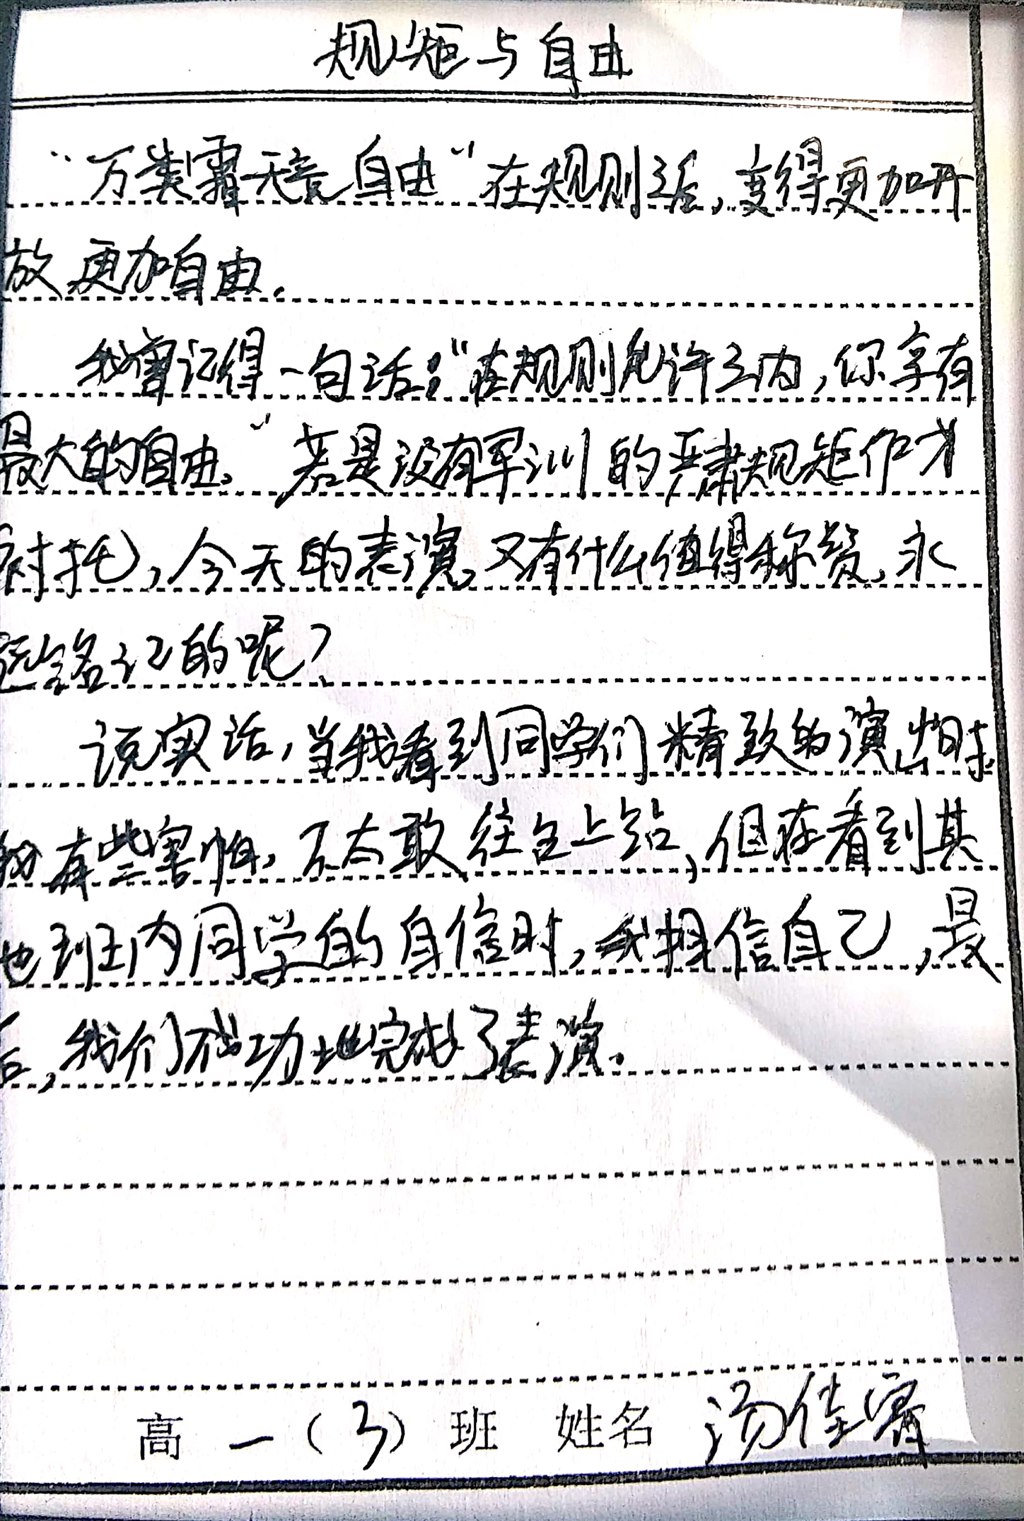 规矩与自由
“万类霜天竞自由”在规则之后,变得更加开
放更加自由.
我曾记得一句话:“在规则允许之内,你享有
最大的自由。”若是没有军训的严肃规矩作为
衬托,今天的表演又有什么值得称赞,永
远铭记的呢?
说实话,当我看到同学们精致的演出时.
我有些害怕,不太敢往台上站,但在看到其
他班内同学的自信时,我相信自己,最
后,我们成功地完成了表演。
高一(3)班 姓名 汤佳